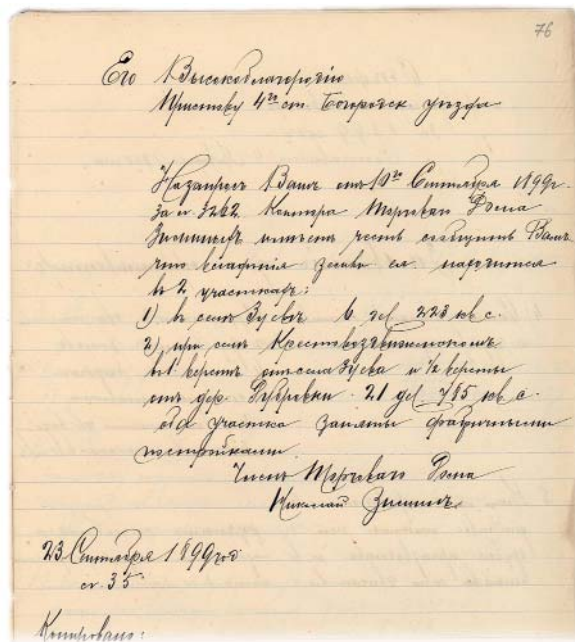 76
Его Высокоблагородію
Приставу 4го ст. Богородск уѣзда
На запросъ Вашъ отъ 10го Сентября 1899г.
за № 3262 Контора Торговаго Дома
Зиминыхъ имѣетъ честь сообщить Вамъ
что владѣнія земли ея находится
въ 2 участкахъ:
1) въ селѣ Зуевѣ 6 дес. 223 кв с.
2) при селѣ Крестовоздвиженскомъ
въ 1 верстѣ отъ села Зуева и ½ версты
отъ дер. Дубровки. 21 дес. 785 кв с.
оба участка заняты фабричными
постройками.
Членъ Торговаго Дома
Николай Зиминъ.
23 Сентября 1899 год
№ 35
Копировано: